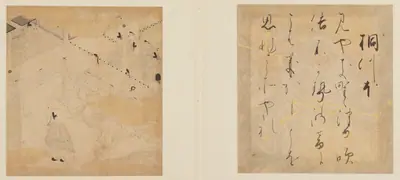 桐つほ
みやき野の露吹
結ふ風の音に
こはきかもとを
思ひこそやれ